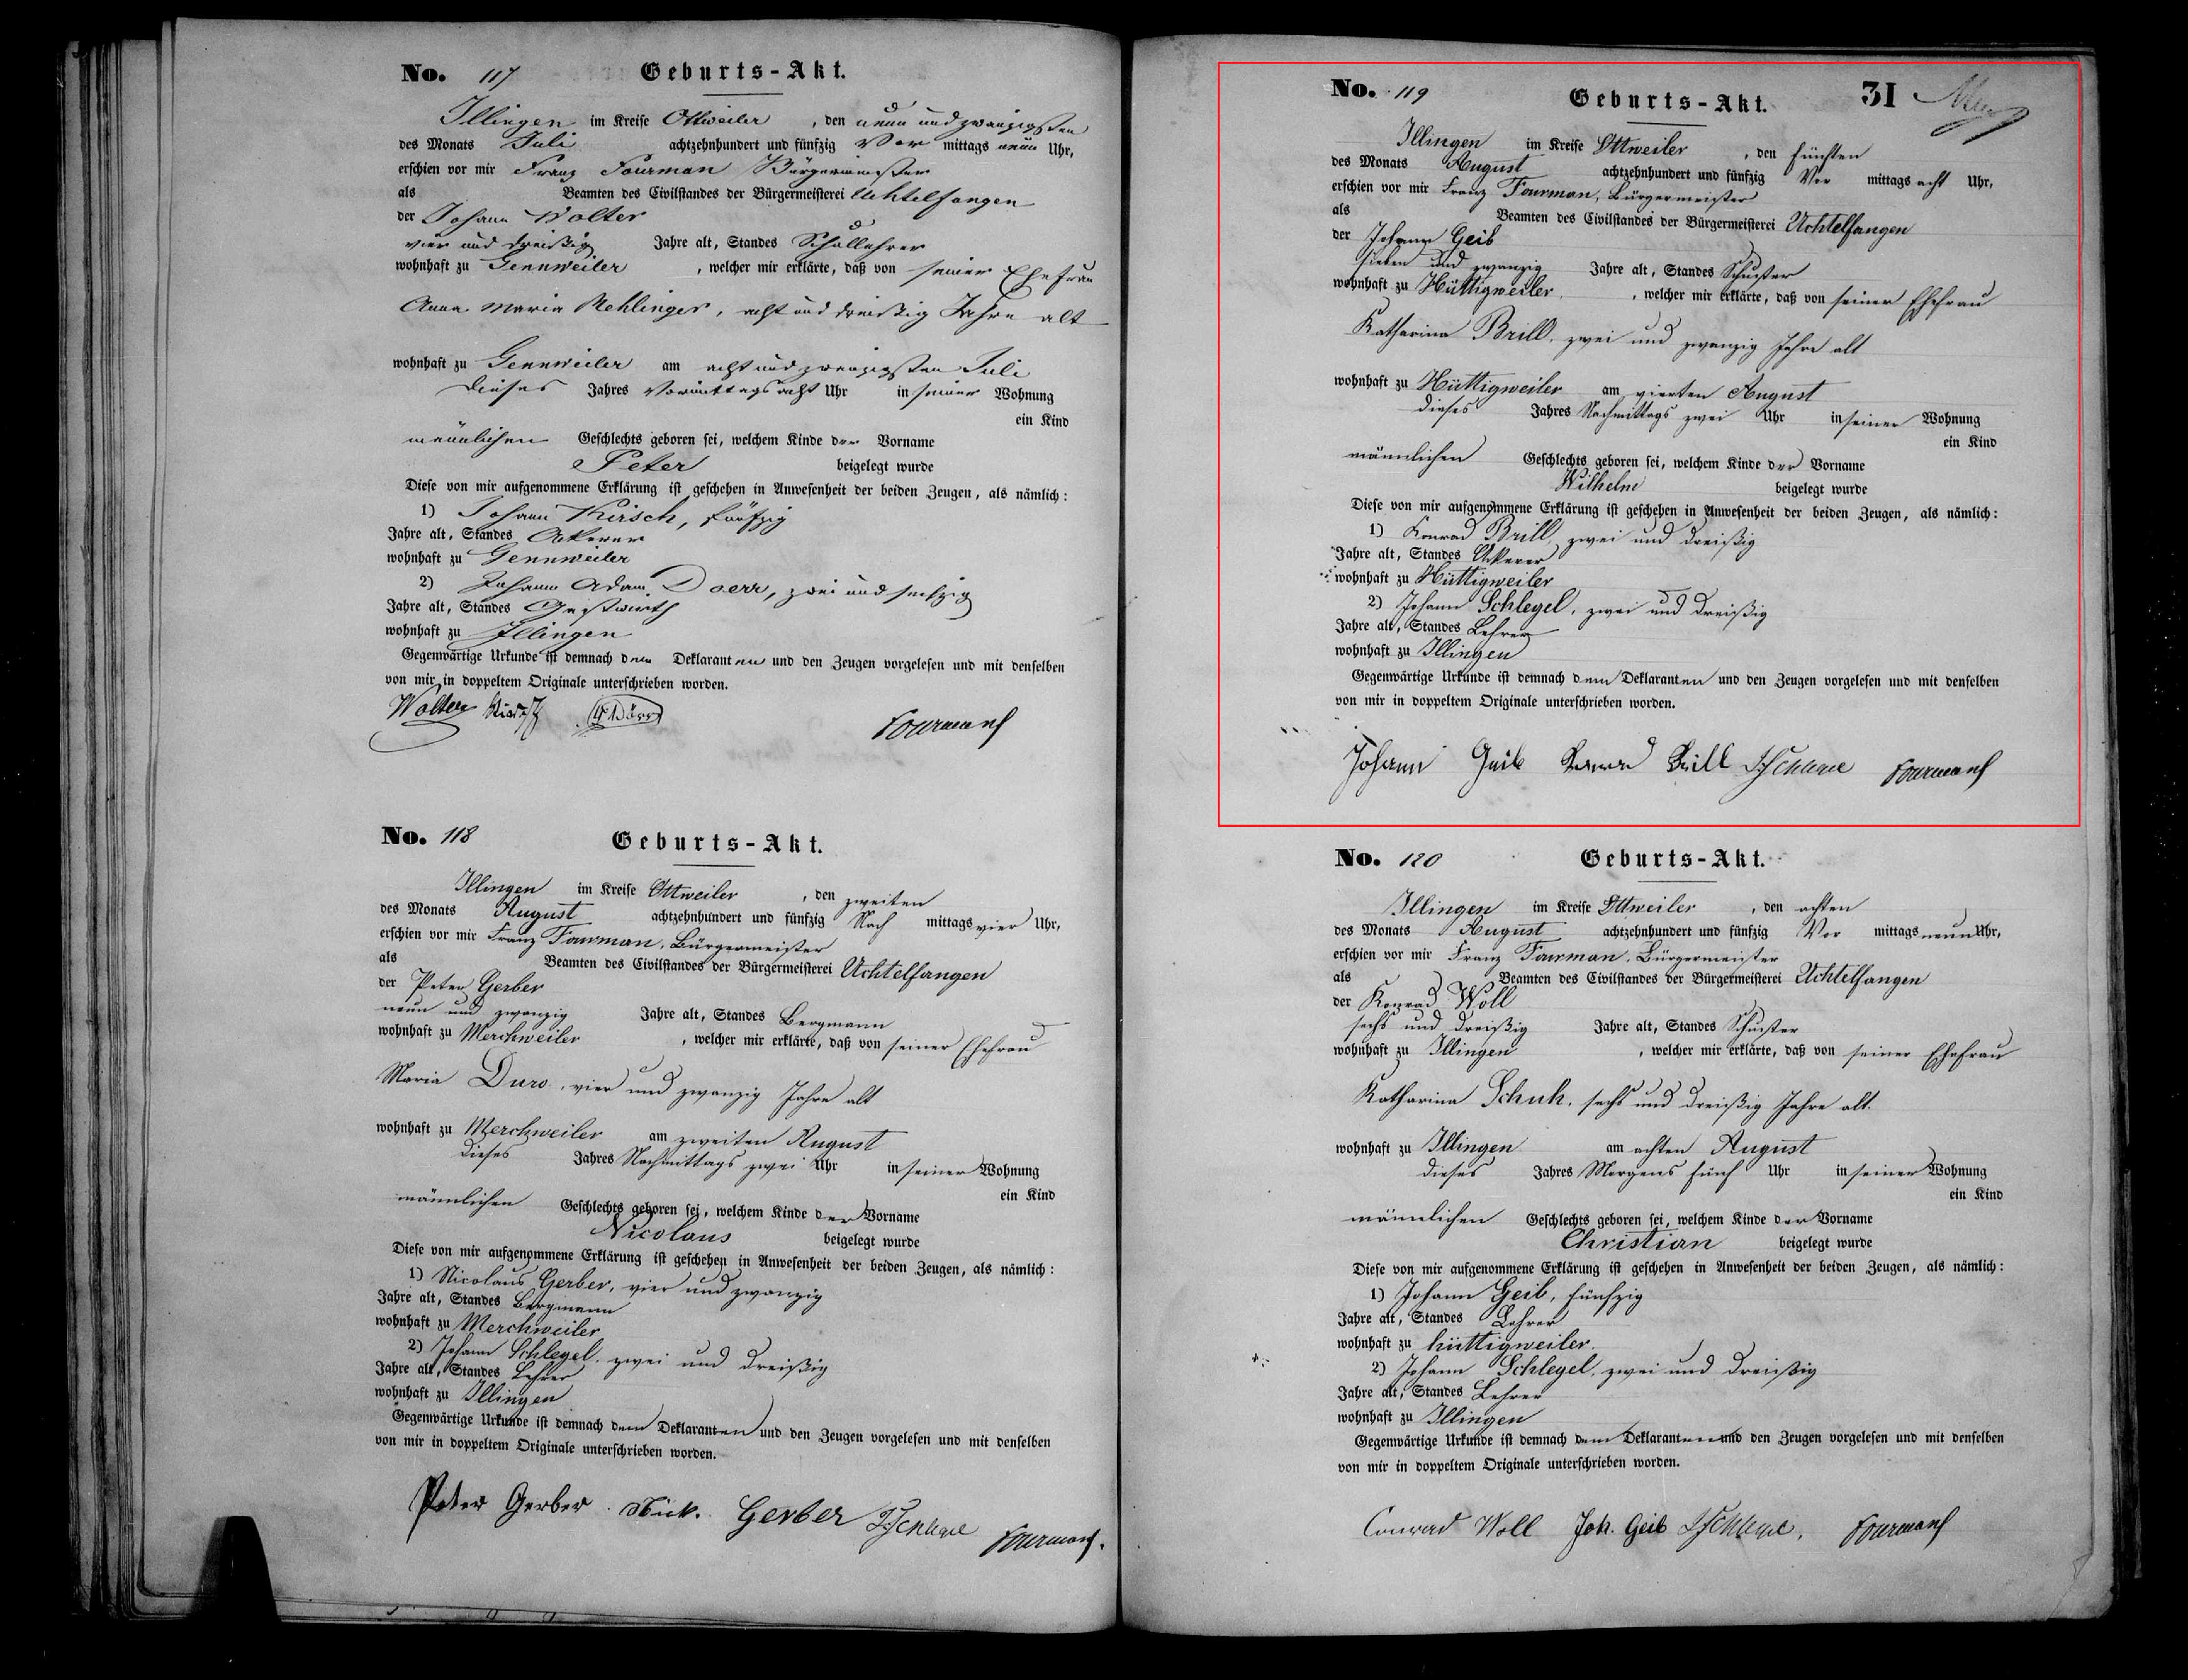 No. 117 Geburts-Akt.
Illingen im Kreise Ottweiler, den neun und zwanzigsten
des Monats Juli achtzehnhundert und fünfzig Vor mittags neun Uhr,
erschien vor mir Franz Fourman Bürgermeister
als Beamten des Civilstandes der Bürgermeisterei Uchtelfangen
der Johann Wolter
vier und dreißig Jahre alt, Standes Schullehrer
wohnhaft zu Gennweiler, welcher mir erklärte, daß von seiner Ehefrau
Anna Maria Rehlinger, acht und dreißig Jahre alt
wohnhaft zu Gennweiler am acht und zwanzigsten Juli
dieses Jahres Vormittags acht Uhr in seiner Wohnung
ein Kind
männlichen Geschlechts geboren sei, welchem Kinde der Vorname
Peter beigelegt wurde
Diese von mir aufgenommene Erklärung ist geschehen in Anwesenheit der beiden Zeugen, als nämlich:
1) Johann Kirsch, fünfzig
Jahre alt, Standes Ackerer
wohnhaft zu Gennweiler
2) Johann Adam Doerr, zwei und sechzig
Jahre alt, Standes Gastwirth
wohnhaft zu Illingen
Gegenwärtige Urkunde ist demnach dem Deklaranten und den Zeugen vorgelesen und mit denselben
von mir in doppeltem Originale unterschrieben worden.
Wolter Kirsch Dörr Fourman
No. 118 Geburts-Akt.
Illingen im Kreise Ottweiler, den zweiten
des Monats August achtzehnhundert und fünfzig Nach mittags vier Uhr,
erschien vor mir Franz Fourman, Bürgermeister
als Beamten des Civilstandes der Bürgermeisterei Uchtelfangen
der Peter Gerber
neun und zwanzig Jahre alt, Standes Bergmann
wohnhaft zu Merchweiler, welcher mir erklärte, daß von seiner Ehefrau
Maria Duro, vier und zwanzig Jahre alt
wohnhaft zu Merchweiler am zweiten August
dieses Jahres Nachmittags zwei Uhr in seiner Wohnung
ein Kind
männlichen Geschlechts geboren sei, welchem Kinde der Vorname
Nicolaus beigelegt wurde
Diese von mir aufgenommene Erklärung ist geschehen in Anwesenheit der beiden Zeugen, als nämlich:
1) Nicolaus Gerber, vier und zwanzig
Jahre alt, Standes Bergmann
wohnhaft zu Merchweiler
2) Johann Schlegel, zwei und dreißig
Jahre alt, Standes Lehrer
wohnhaft zu Illingen
Gegenwärtige Urkunde ist demnach dem Deklaranten und den Zeugen vorgelesen und mit denselben
von mir in doppeltem Originale unterschrieben worden.
Peter Gerber Nick. Gerber Schlegel Fourman.
No. 119 Geburts-Akt. 31
Illingen im Kreise Ottweiler, den fünften
des Monats August achtzehnhundert und fünfzig Vor mittags acht Uhr,
erschien vor mir Franz Fourman, Bürgermeister
als Beamten des Civilstandes der Bürgermeisterei Uchtelfangen
der Johann Geib
sieben und zwanzig Jahre alt, Standes Schuster
wohnhaft zu Hüttigweiler, welcher mir erklärte, daß von seiner Ehefrau
Katharina Brill, zwei und zwanzig Jahre alt
wohnhaft zu Hüttigweiler am vierten August
dieses Jahres Nachmittags zwei Uhr in seiner Wohnung
ein Kind
männlichen Geschlechts geboren sei, welchem Kinde der Vorname
Wilhelm beigelegt wurde
Diese von mir aufgenommene Erklärung ist geschehen in Anwesenheit der beiden Zeugen, als nämlich:
1) Konrad Brill, zwei und dreißig
Jahre alt, Standes Ackerer
wohnhaft zu Hüttigweiler
2) Johann Schlegel, zwei und dreißig
Jahre alt, Standes Lehrer
wohnhaft zu Illingen
Gegenwärtige Urkunde ist demnach dem Deklaranten und den Zeugen vorgelesen und mit denselben
von mir in doppeltem Originale unterschrieben worden.
Johann Geib Brill Schlegel Fourman
No. 120 Geburts-Akt.
Illingen im Kreise Ottweiler, den achten
des Monats August achtzehnhundert und fünfzig Vor mittags neun Uhr,
erschien vor mir Franz Fourman, Bürgermeister
als Beamten des Civilstandes der Bürgermeisterei Uchtelfangen
der Konrad Woll
sechs und dreißig Jahre alt, Standes Schuster
wohnhaft zu Illingen, welcher mir erklärte, daß von seiner Ehefrau
Katharina Schuh, sechs und dreißig Jahre alt.
wohnhaft zu Illingen am achten August
dieses Jahres Morgens fünf Uhr in seiner Wohnung
ein Kind
männlichen Geschlechts geboren sei, welchem Kinde der Vorname
Christian beigelegt wurde
Diese von mir aufgenommene Erklärung ist geschehen in Anwesenheit der beiden Zeugen, als nämlich:
1) Johann Geib, fünfzig
Jahre alt, Standes Lehrer
wohnhaft zu hüttigweiler.
2) Johann Schlegel, zwei und dreißig
Jahre alt, Standes Lehrer
wohnhaft zu Illingen
Gegenwärtige Urkunde ist demnach dem Deklaranten und den Zeugen vorgelesen und mit denselben
von mir in doppeltem Originale unterschrieben worden.
Conrad Woll Joh. Geib Schlegel, Fourman